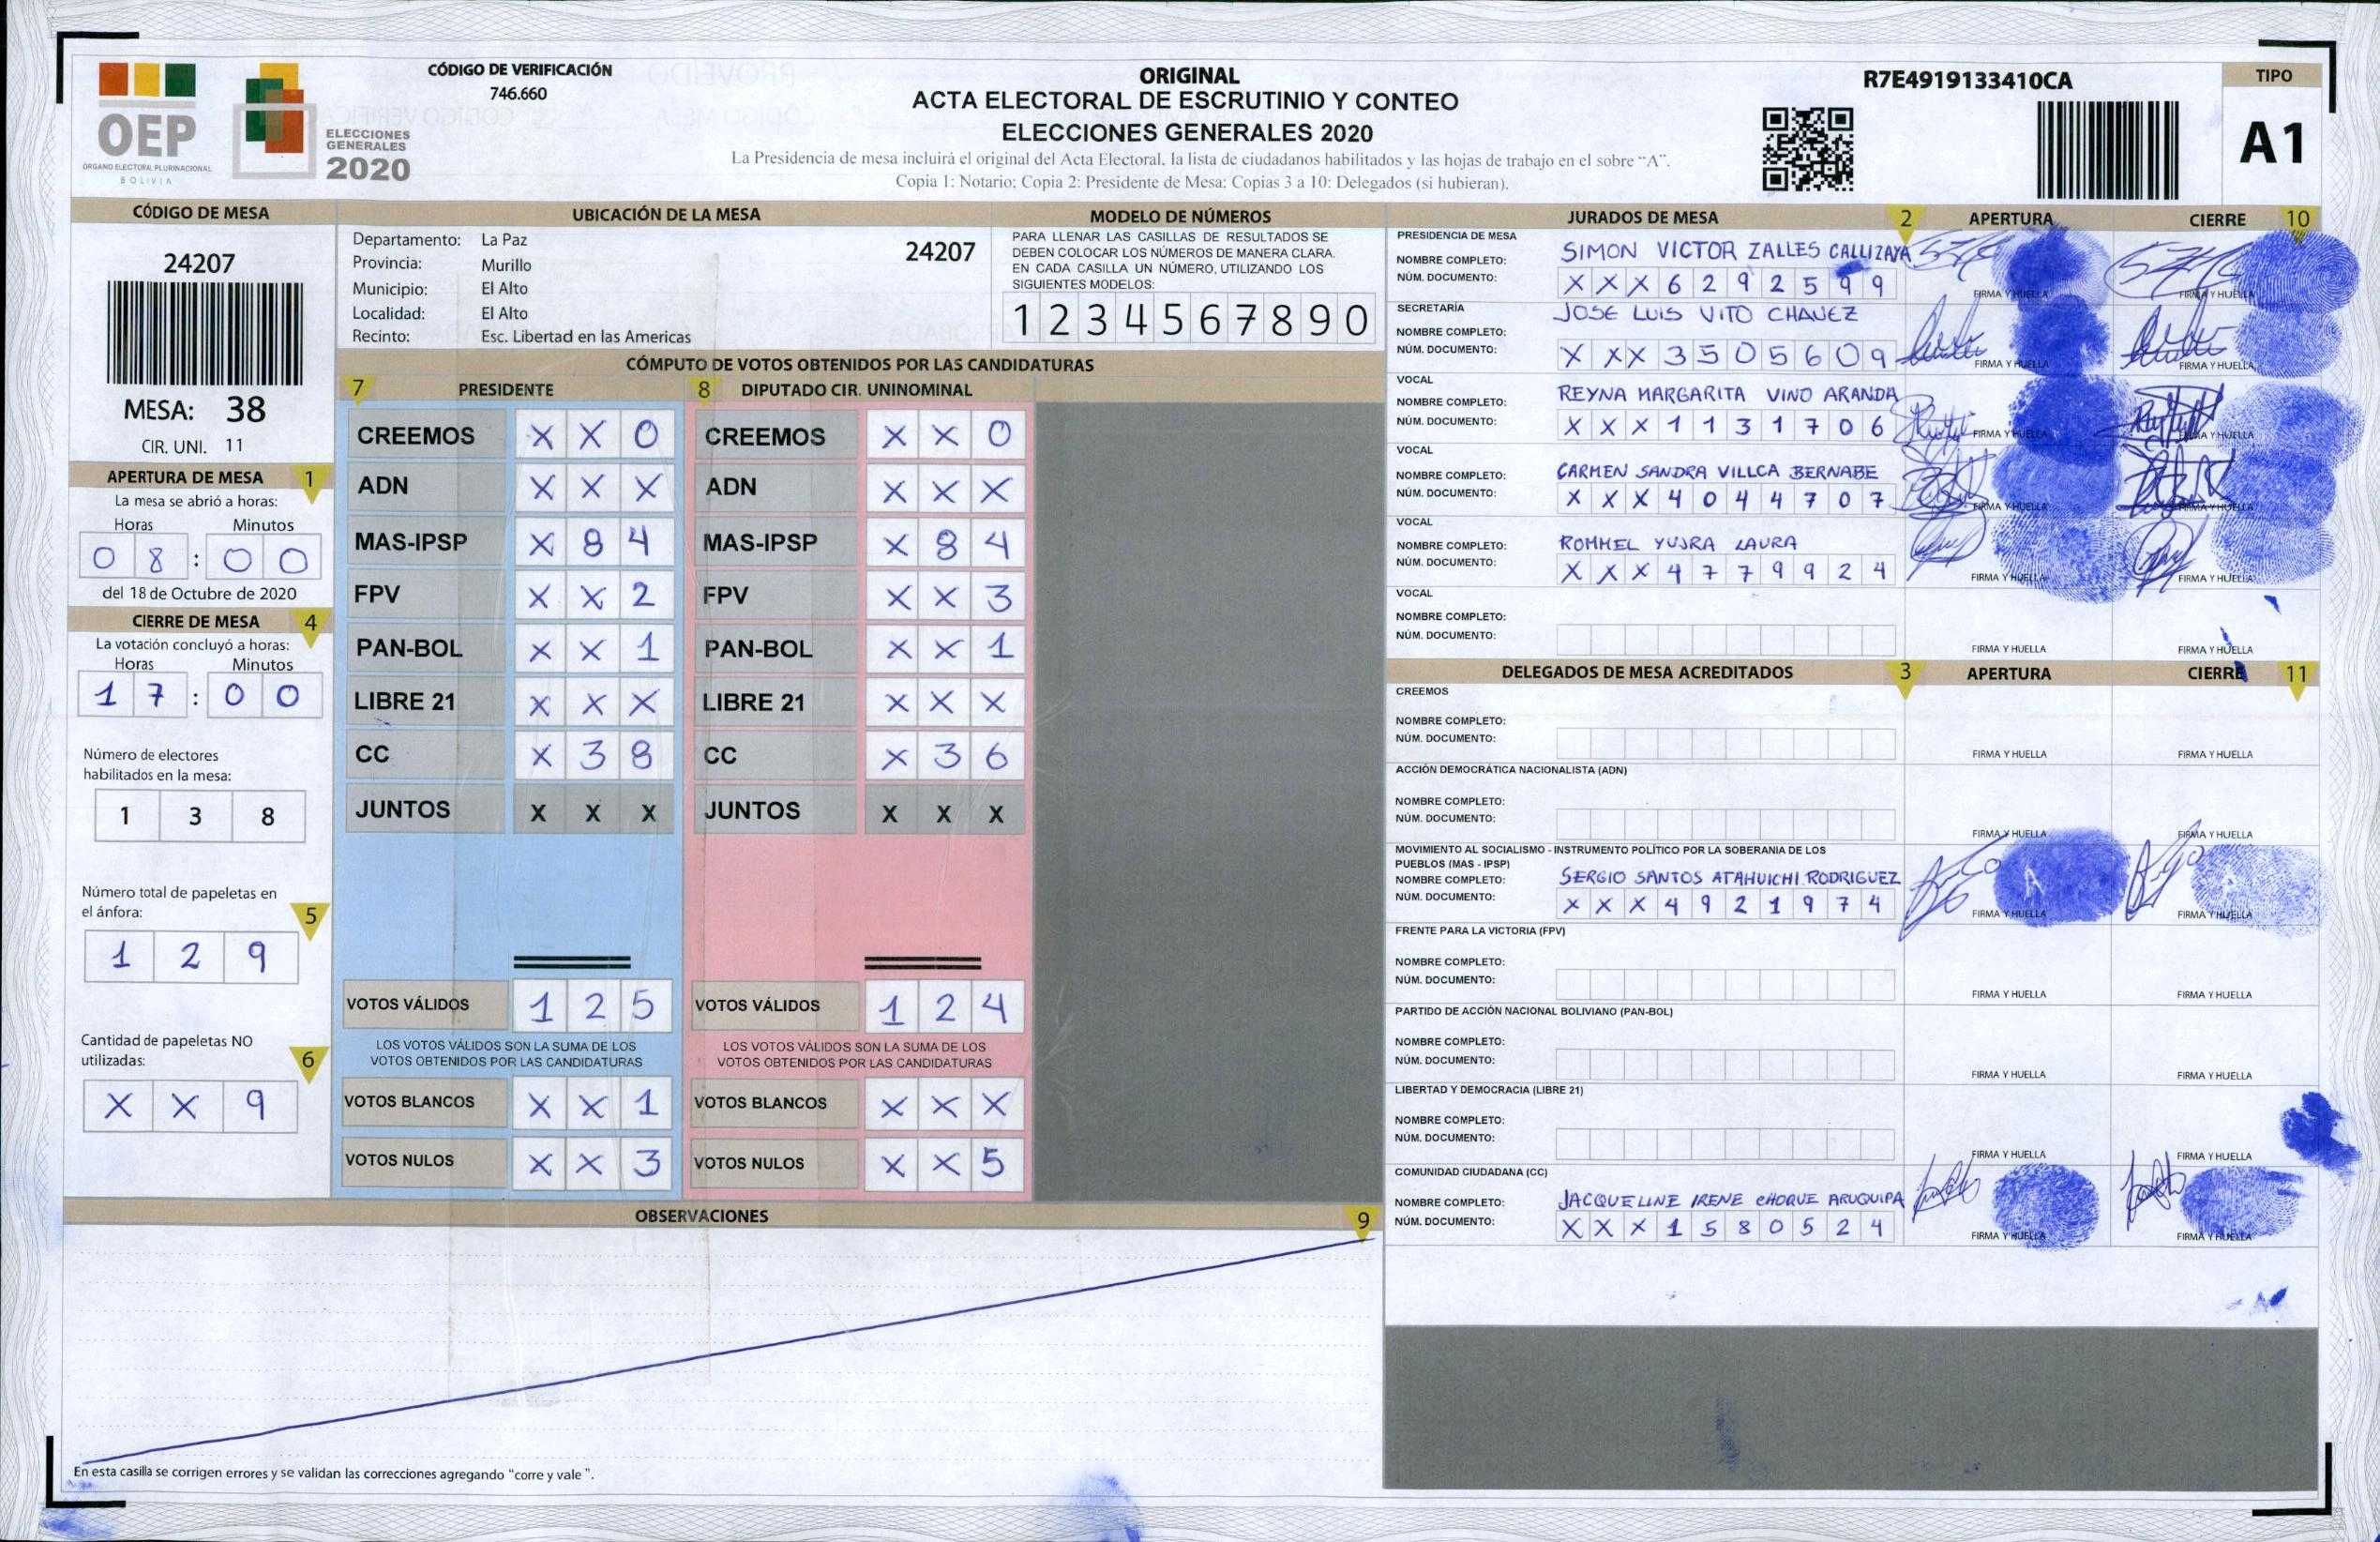 OEP
ÓRGANO ELECTORAL PLURINACIONAL
BOLIVIA
ELECCIONES
GENERALES
2020
CÓDIGO DE VERIFICACIÓN
746.660
ORIGINAL
ACTA ELECTORAL DE ESCRUTINIO Y CONTEO
ELECCIONES GENERALES 2020
La Presidencia de mesa incluirá el original del Acta Electoral, la lista de ciudadanos habilitados y las hojas de trabajo en el sobre "A".
Copia 1: Notario; Copia 2: Presidente de Mesa; Copias 3 a 10: Delegados (si hubieran).
R7E4919133410CA
TIPO
A1
CÓDIGO DE MESA
24207
MESA: 38
CIR. UNI. 11
APERTURA DE MESA 1
La mesa se abrió a horas:
Horas Minutos
0 8 : 0 0
del 18 de Octubre de 2020
CIERRE DE MESA 4
La votación concluyó a horas:
Horas Minutos
1 7 : 0 0
Número de electores
habilitados en la mesa:
1 3 8
Número total de papeletas en
el ánfora: 5
1 2 9
Cantidad de papeletas NO
utilizadas: 6
X X 9
UBICACIÓN DE LA MESA
Departamento: La Paz
24207
Provincia: Murillo
Municipio: El Alto
Localidad: El Alto
Recinto: Esc. Libertad en las Americas
MODELO DE NÚMEROS
PARA LLENAR LAS CASILLAS DE RESULTADOS SE
DEBEN COLOCAR LOS NÚMEROS DE MANERA CLARA.
EN CADA CASILLA UN NÚMERO, UTILIZANDO LOS
SIGUIENTES MODELOS:
1 2 3 4 5 6 7 8 9 0
CÓMPUTO DE VOTOS OBTENIDOS POR LAS CANDIDATURAS
7 PRESIDENTE 8 DIPUTADO CIR. UNINOMINAL
CREEMOS X X 0 CREEMOS X X 0
ADN X X X ADN X X X
MAS-IPSP X 8 4 MAS-IPSP X 8 4
FPV X X 2 FPV X X 3
PAN-BOL X X 1 PAN-BOL X X 1
LIBRE 21 X X X LIBRE 21 X X X
CC X 3 8 CC X 3 6
JUNTOS X X X JUNTOS X X X
VOTOS VÁLIDOS 1 2 5 VOTOS VÁLIDOS 1 2 4
LOS VOTOS VÁLIDOS SON LA SUMA DE LOS LOS VOTOS VÁLIDOS SON LA SUMA DE LOS
VOTOS OBTENIDOS POR LAS CANDIDATURAS VOTOS OBTENIDOS POR LAS CANDIDATURAS
VOTOS BLANCOS X X 1 VOTOS BLANCOS X X X
VOTOS NULOS X X 3 VOTOS NULOS X X 5
OBSERVACIONES 9
En esta casilla se corrigen errores y se validan las correcciones agregando "corre y vale ".
JURADOS DE MESA 2 APERTURA CIERRE 10
PRESIDENCIA DE MESA
NOMBRE COMPLETO: SIMON VICTOR ZALLES CALLIZAYA
NÚM. DOCUMENTO: X X X 6 2 9 2 5 9 9
FIRMA Y HUELLA FIRMA Y HUELLA
SECRETARÍA
NOMBRE COMPLETO: JOSE LUIS VITO CHAVEZ
NÚM. DOCUMENTO: X X X 3 5 0 5 6 0 9
FIRMA Y HUELLA FIRMA Y HUELLA
VOCAL
NOMBRE COMPLETO: REYNA MARGARITA VINO ARANDA
NÚM. DOCUMENTO: X X X 1 1 3 1 7 0 6
FIRMA Y HUELLA FIRMA Y HUELLA
VOCAL
NOMBRE COMPLETO: CARMEN SANDRA VILLCA BERNABE
NÚM. DOCUMENTO: X X X 4 0 4 4 7 0 7
FIRMA Y HUELLA FIRMA Y HUELLA
VOCAL
NOMBRE COMPLETO: ROMMEL YUJRA LAURA
NÚM. DOCUMENTO: X X X 4 7 7 9 9 2 4
FIRMA Y HUELLA FIRMA Y HUELLA
VOCAL
NOMBRE COMPLETO:
NÚM. DOCUMENTO:
FIRMA Y HUELLA FIRMA Y HUELLA
DELEGADOS DE MESA ACREDITADOS 3 APERTURA CIERRE 11
CREEMOS
NOMBRE COMPLETO:
NÚM. DOCUMENTO:
FIRMA Y HUELLA FIRMA Y HUELLA
ACCIÓN DEMOCRÁTICA NACIONALISTA (ADN)
NOMBRE COMPLETO:
NÚM. DOCUMENTO:
FIRMA Y HUELLA FIRMA Y HUELLA
MOVIMIENTO AL SOCIALISMO - INSTRUMENTO POLÍTICO POR LA SOBERANIA DE LOS
PUEBLOS (MAS - IPSP)
NOMBRE COMPLETO: SERGIO SANTOS ATAHUICHI RODRIGUEZ
NÚM. DOCUMENTO: X X X 4 9 2 1 9 7 4
FIRMA Y HUELLA FIRMA Y HUELLA
FRENTE PARA LA VICTORIA (FPV)
NOMBRE COMPLETO:
NÚM. DOCUMENTO:
FIRMA Y HUELLA FIRMA Y HUELLA
PARTIDO DE ACCIÓN NACIONAL BOLIVIANO (PAN-BOL)
NOMBRE COMPLETO:
NÚM. DOCUMENTO:
FIRMA Y HUELLA FIRMA Y HUELLA
LIBERTAD Y DEMOCRACIA (LIBRE 21)
NOMBRE COMPLETO:
NÚM. DOCUMENTO:
FIRMA Y HUELLA FIRMA Y HUELLA
COMUNIDAD CIUDADANA (CC)
NOMBRE COMPLETO: JACQUELINE IRENE CHOQUE ARUQUIPA
NÚM. DOCUMENTO: X X X 1 5 8 0 5 2 4
FIRMA Y HUELLA FIRMA Y HUELLA